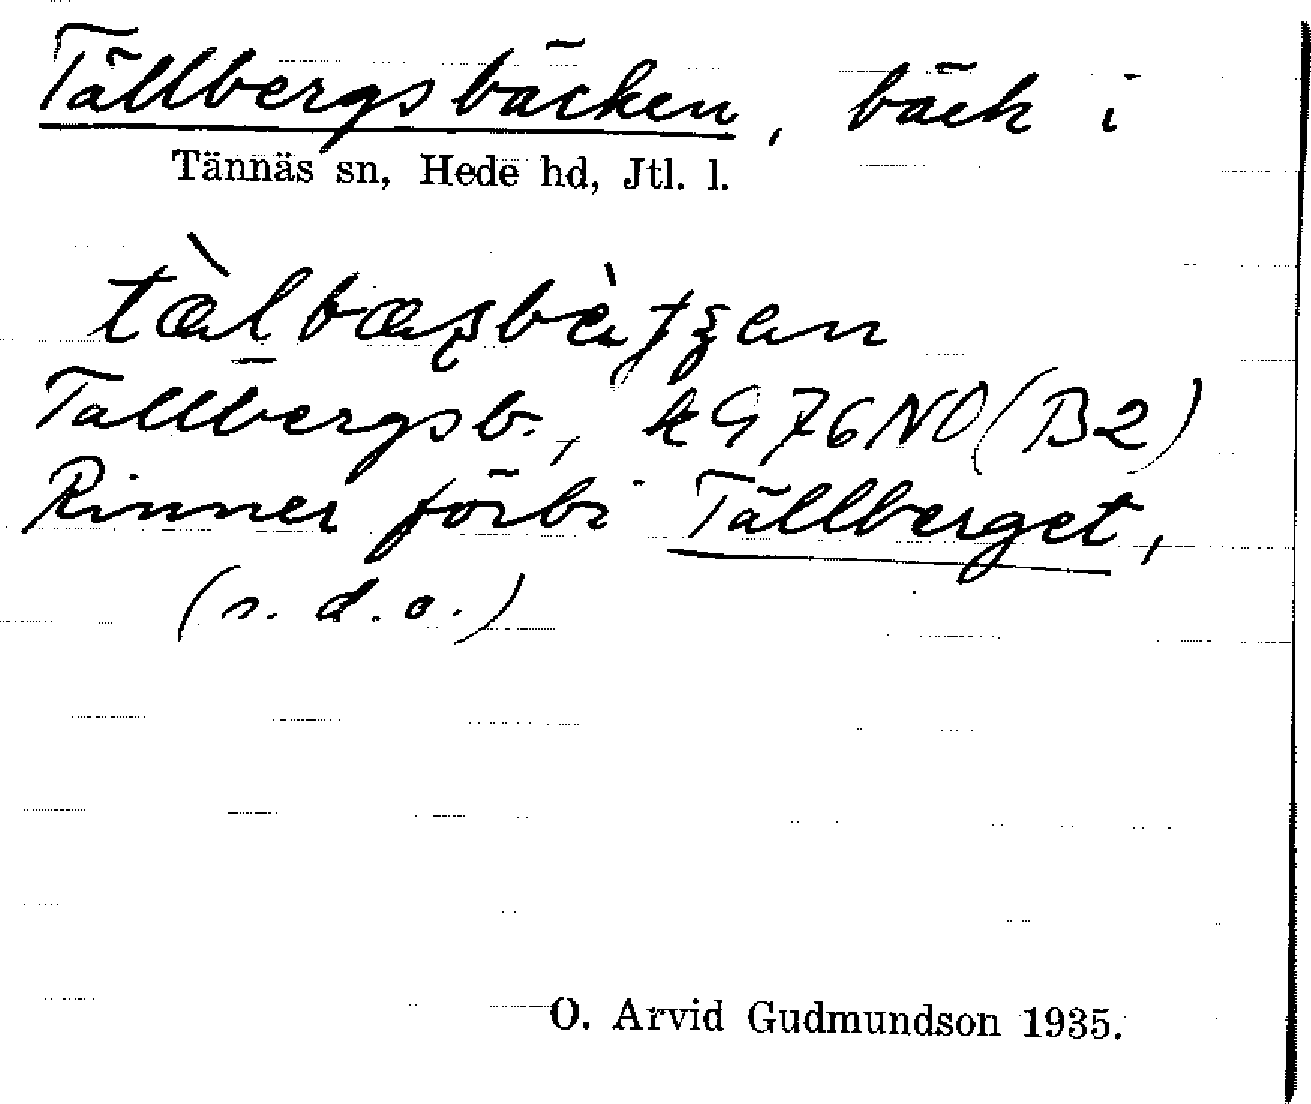 Tällbergsbäcken, bäck i
Tännäs sn, Hede hd, Jtl. l.
Tällbergsb., kG76NO(B2)
Rinner förbi Tällberget,
(s. d. o.)
O. Arvid Gudmundson 1935.